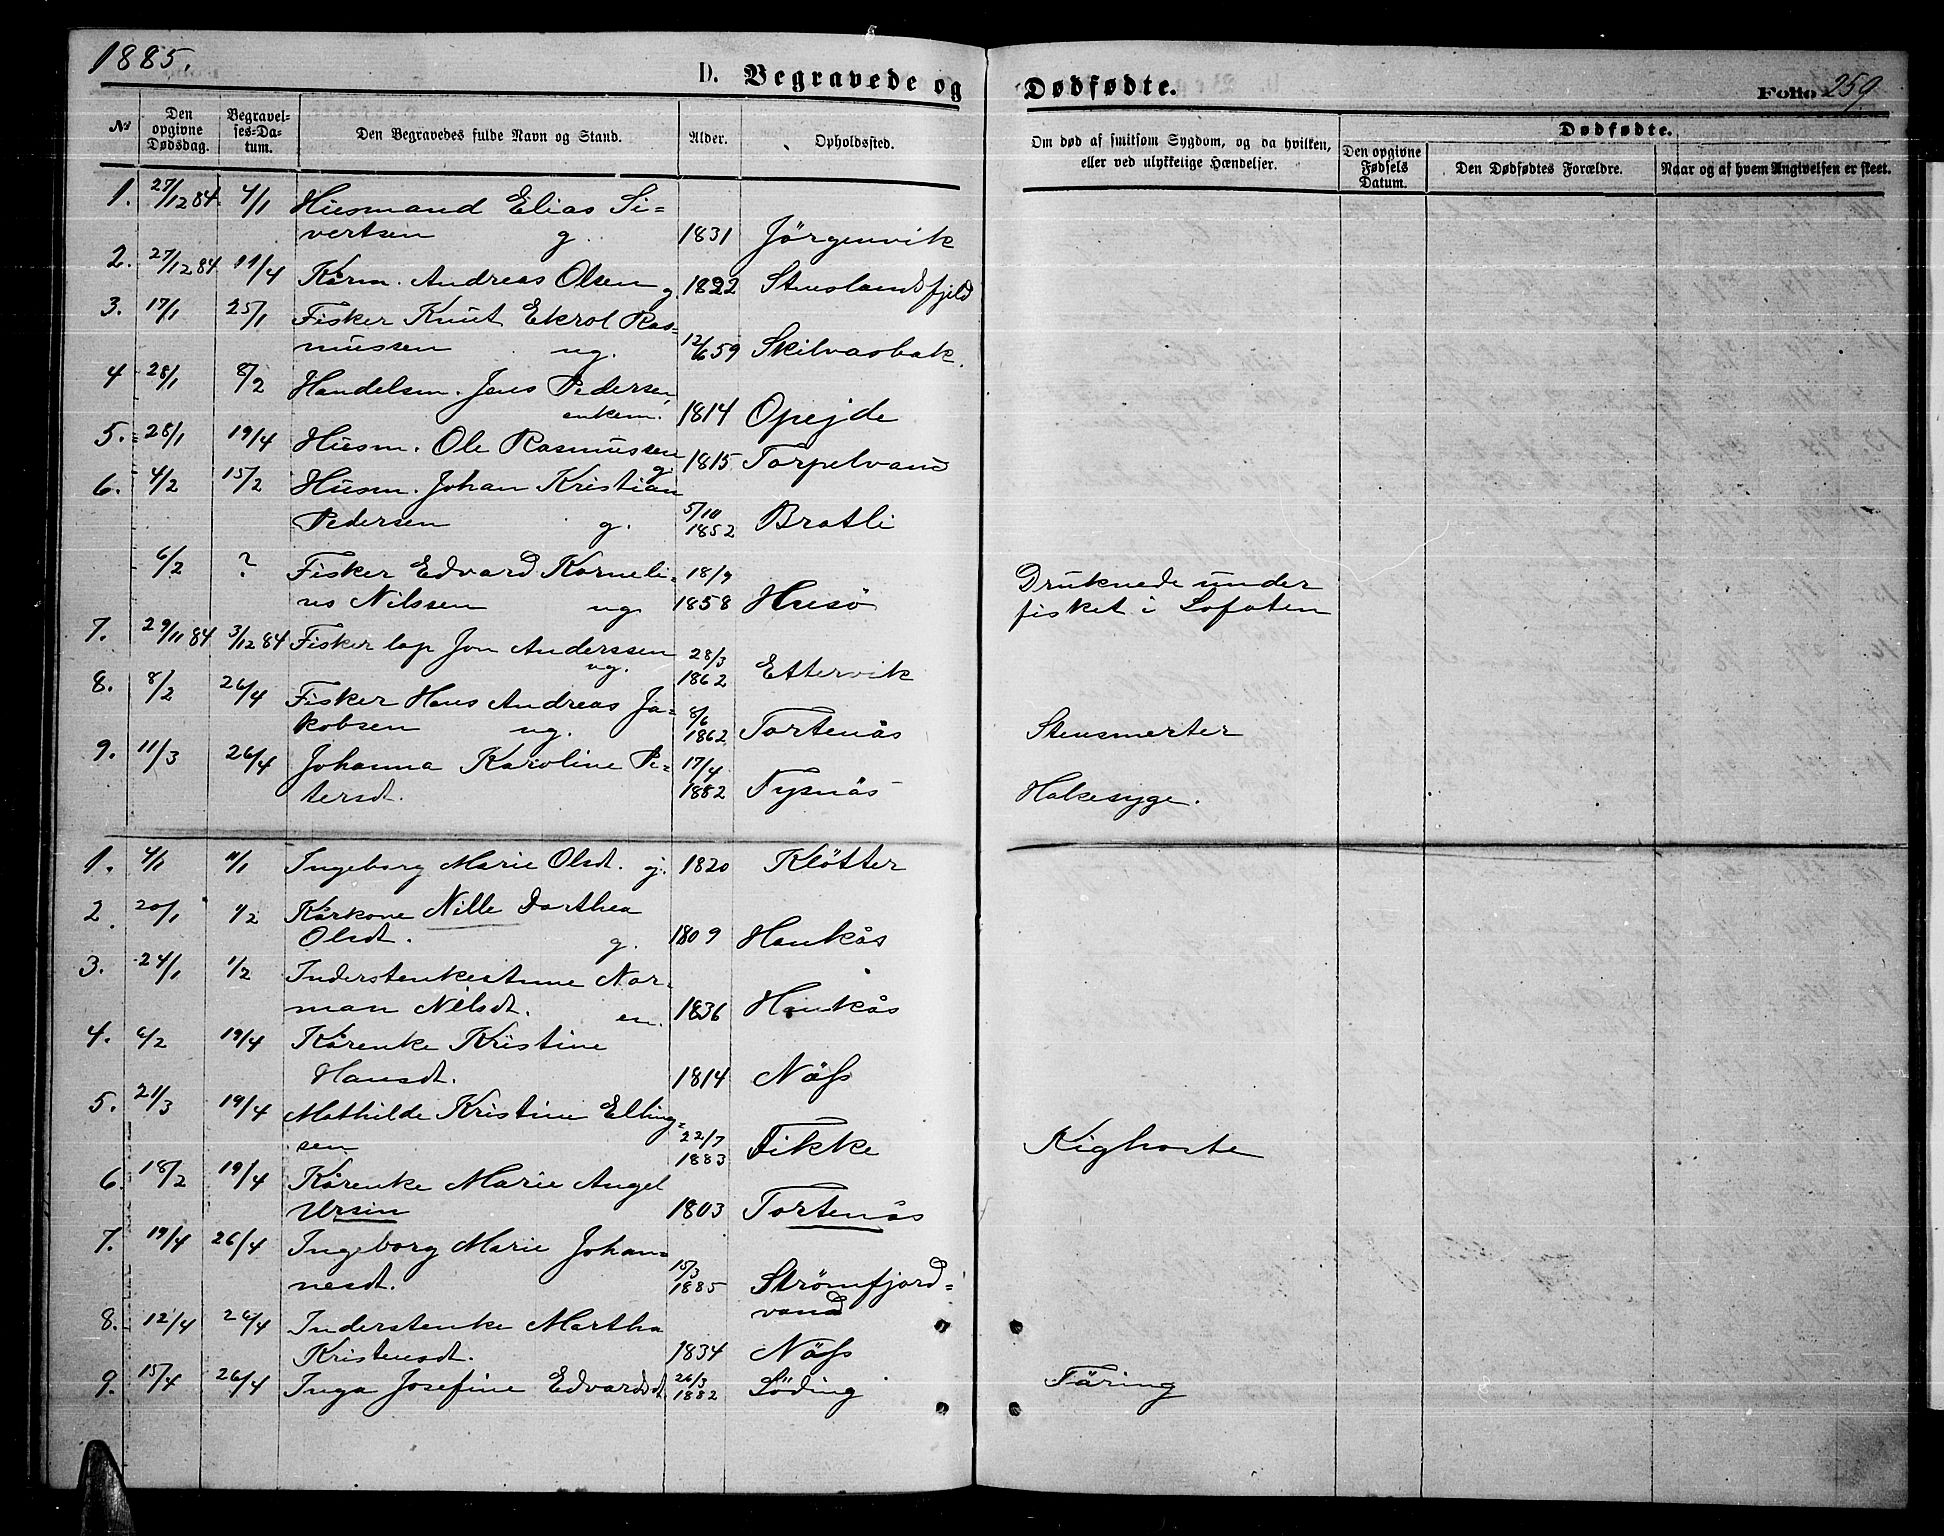 1885.
D. Begravede og Dødfødte.
Folio 259
No | Den opgivne Dødsdag. | Begravelses-Datum. | Den Begravedes fulde Navn og Stand. | Alder. | Opholdssted. | Om død af smitsom Sygdom, og da hvilken, eller ved ulykkelige Hændelser. | Dødfødte. | Den opgivne Fødsels Datum. | Den Dødfødtes Forældre. | Naar og af hvem Angivelsen er skeet.
1. 27/12 84. 4/1 Husmand Elias Si=
vertsen g. 1831 Jörgenvik
2. 27/12 84 19/4 Kårm. Andreas Olsen g. 1822 Stenslandsfjeld
3. 17/1 25/1 Fisker Knut Ekrol Ras=
mussen ug. 12/6 59 Skilvasbak.
4 28/1 8/2 Handelsm. Jens Pedersen,
enkem. 1814 Opejde
5. 28/1 19/4 Husm. Ole Rasmussen g. 1815 Torpelvand
6. 4/2 15/2 Husm. Johan Kristian
Pedersen g. 5/10 1852 Bratli
6/2 ? Fisker Edvard Korneli=
us Nilssen ug. 18/9 1858 Husö Druknede under
fisket i Lofoten
7. 29/11 84 3/12 84 Fisker lap Jon Anderssen
ug. 28/3 1862 Ettervik
8. 8/2 26/4 Fisker Hans Andreas Ja=
kobsen ug. 8/6 1862 Tortenås Stensmerter
9. 11/3 26/4 Johanna Karoline Pe=
tersdt. 17/4 1882 Nysnäs Halsesyge.
1. 4/1 11/1 Ingeborg Marie Olsdt. g. 1820 Klötter
2. 20/1 1/2 Kårkone Nille Dorthea
Olsdt. g. 1809 Haukås
3. 24/1 1/2 Inderstenke Anne Nor=
man Nilsdt. en. 1836 Haukås
4. 6/2 19/4 Kårenke Kristine
Hansdt. 1814 Näss
5. 21/3 19/4 Mathilde Kristine Elling=
sen 22/7 1883 Fikke Kighoste
6. 18/2 19/4 Kårenke Marie Angel
Ursin 1803 Tortenås
7. 19/4 26/4 Ingeborg Marie Johan=
nesdt. 15/3 1885 Strömfjord=
vand
8. 12/4 26/4 Inderstenke Martha
Kristensdt. 1834 Näss
9. 15/4 26/4 Inga Josefine Edvardsdt 26/3 1882 Löding Täring